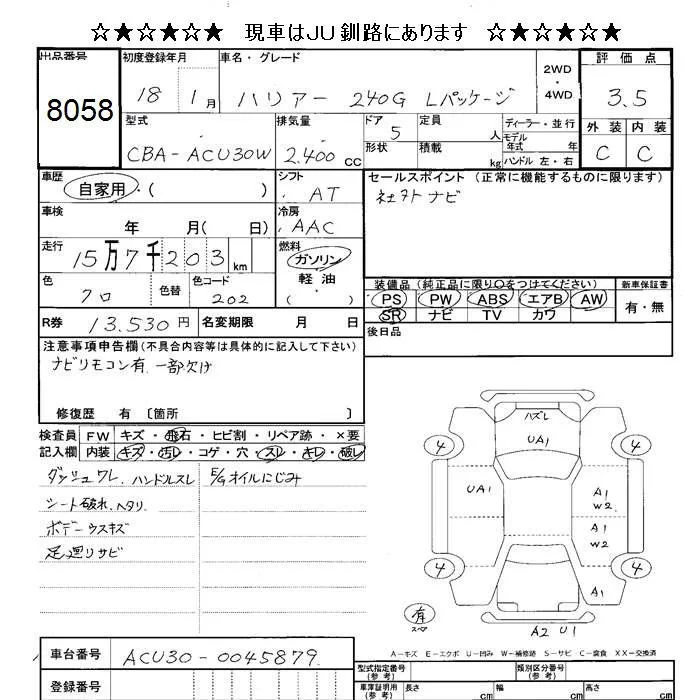 ☆★☆★☆★☆ 現車はJU釧路にあります ☆★☆★☆★☆
出品番号 8058
初度登録年月 18 1月
車名・グレード ハリアー 240G Lパッケージ
2WD・4WD
評価点 3.5
外装 内装
C C
型式 CBA-ACU30W
排気量 2.400cc
ドア 5 形状
定員 人
積載 kg
ディーラー・並行
モデル年式 年
ハンドル 左・右
車歴 自家用・( )
シフト AT
セールスポイント (正常に機能するものに限ります)
ナビ
車検 年 月( 日)
冷房 AAC
走行 15万7千203km
燃料 ガソリン 軽油
色 クロ 色替 色コード 202
装備品 (純正品に限り○をつけてください)
PS PW ABS エアB AW
SR ナビ TV カワ
新車保証書 有・無
R券 13.530円 名変期限 月 日
後日品
注意事項申告欄 (不具合内容等は具体的に記入して下さい)
ナビリモコン有.一部欠け
修復歴 有 〔箇所 〕
検査員記入欄
FW キズ・飛石・ヒビ割・リペア跡・×要
内装 キズ・汚レ・コゲ・穴・スレ・キレ・破レ
ダッシュワレ.ハンドルスレ
E/Gオイルにじみ
シート破れ.ヘタリ.
ボデーウスキズ
足廻リサビ
ハズレ
UA1
4 4
UA1
A1
W2
A1
W2
4 4
A1
有
スペア
A2 U1
A-キズ E-エクボ U-凹み W-補修跡 S-サビ C-腐食 XX-交換済
車台番号 ACU30-0045879
登録番号
型式指定番号 (参考)
類別区分番号 (参考)
車庫証明用 (参考) 長さ cm 幅 cm 高さ cm